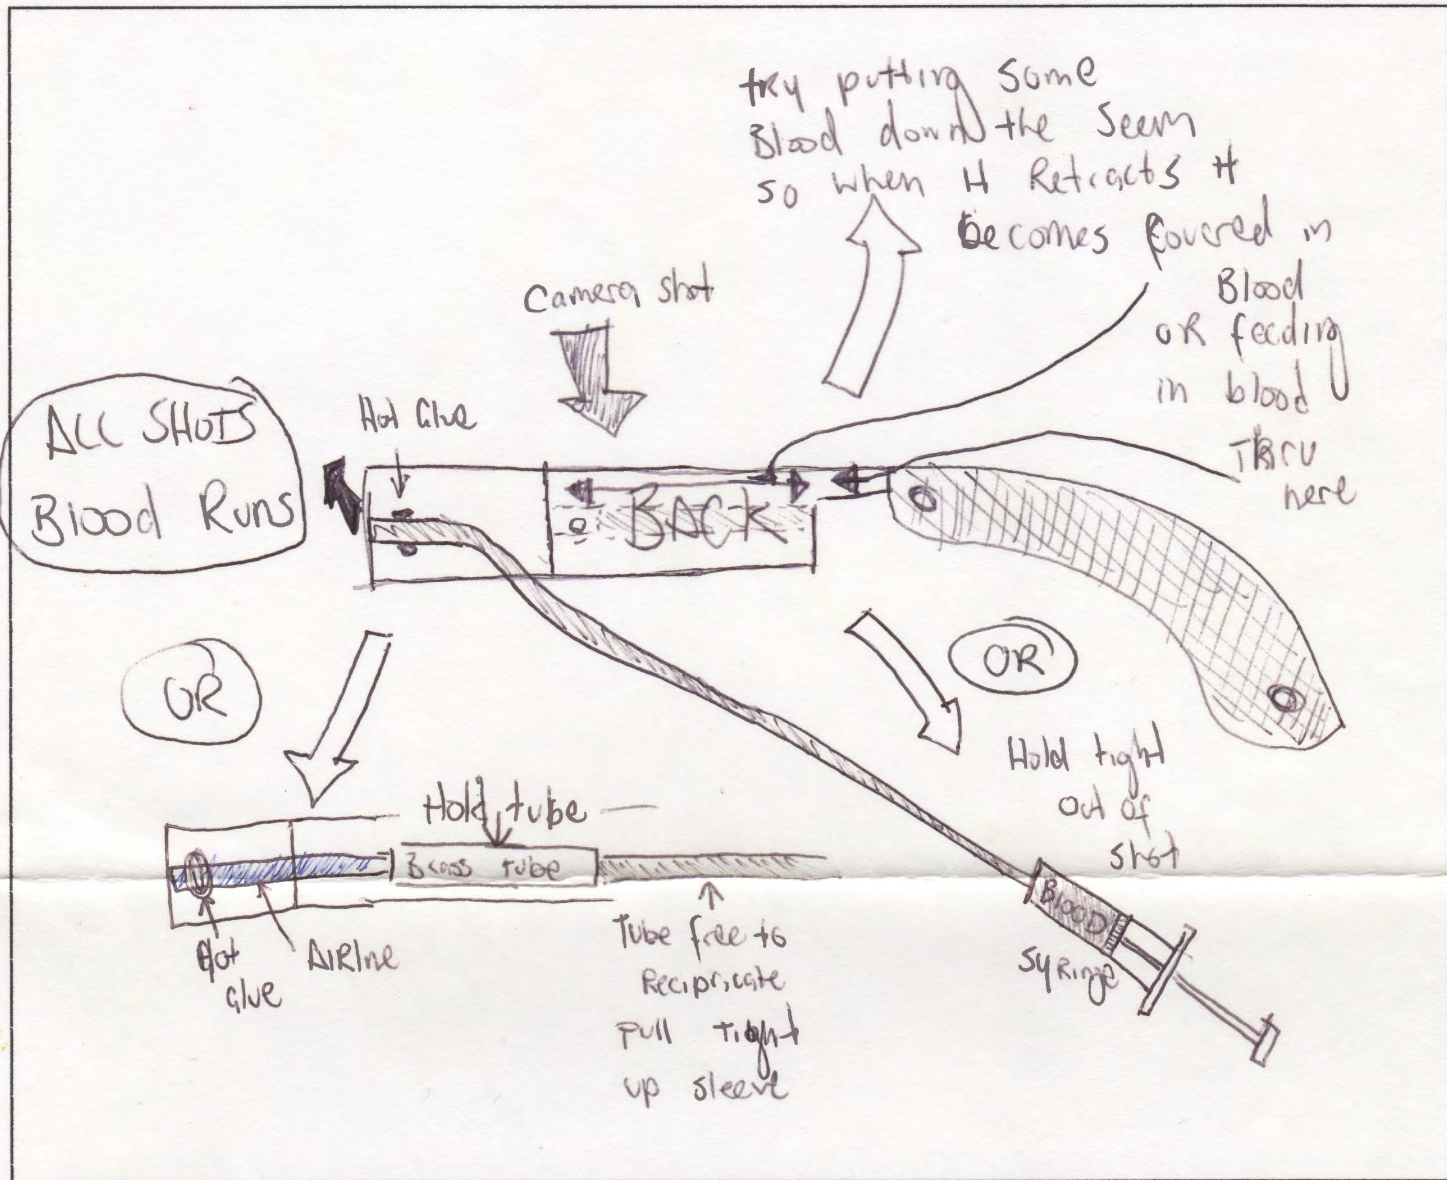 try putting some
Blood down the Seem
so when it Retracts it
becomes Covered in
Blood
OR feeding
in blood
THRU
here
Camera shot
ALL SHOTS
Blood Runs
Hot Glue
BACK
OR
OR
Hold tight
out of
shot
Hold tube
Brass tube
Hot
Glue
AIRline
Tube free to
Recipricate
pull tight
up sleeve
BLOOD
SyRinge